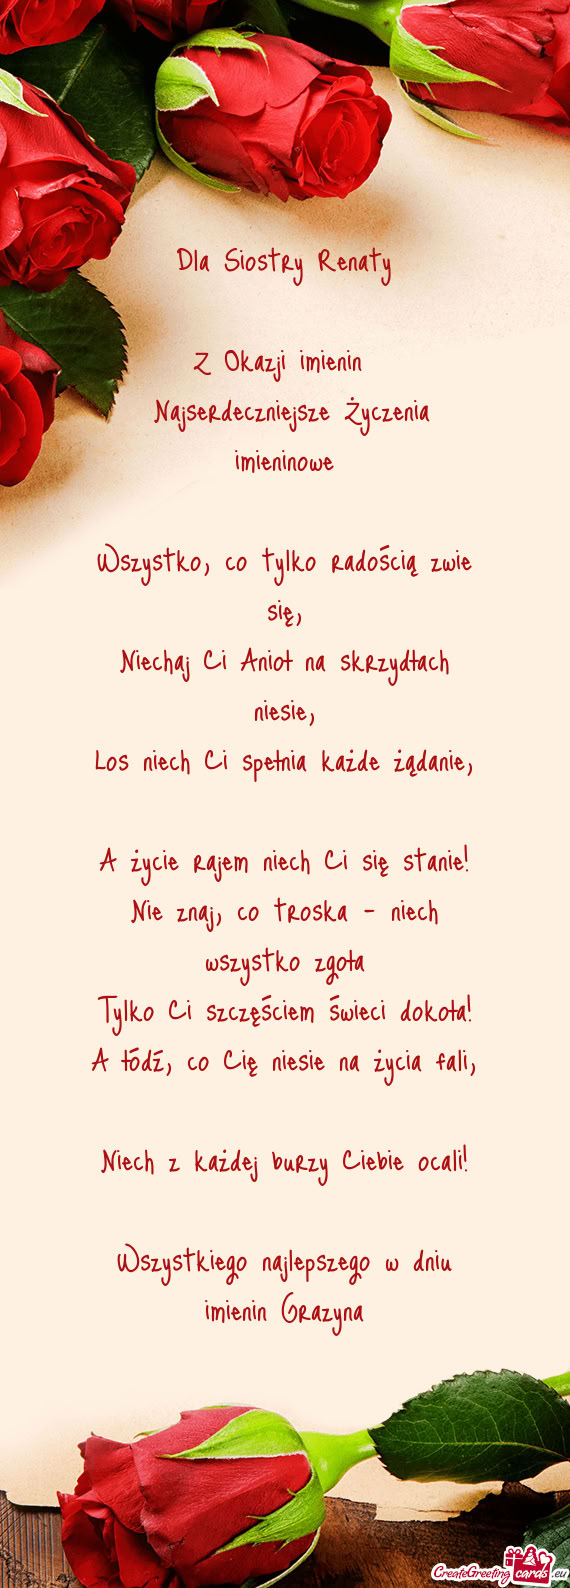 Dla Siostry Renaty
Z Okazji imienin
Najserdeczniejsze Życzenia
imieninowe
Wszystko, co tylko radością zwie
się,
Niechaj Ci Anioł na skrzydłach
niesie,
Los niech Ci spełnia każde żądanie,
A życie rajem niech Ci się stanie!
Nie znaj, co troska - niech
wszystko zgoła
Tylko Ci szczęściem świeci dokoła!
A łódź, co Cię niesie na życia fali,
Niech z każdej burzy Ciebie ocali!
Wszystkiego najlepszego w dniu
imienin Grazyna
CreateGreetingcards.eu